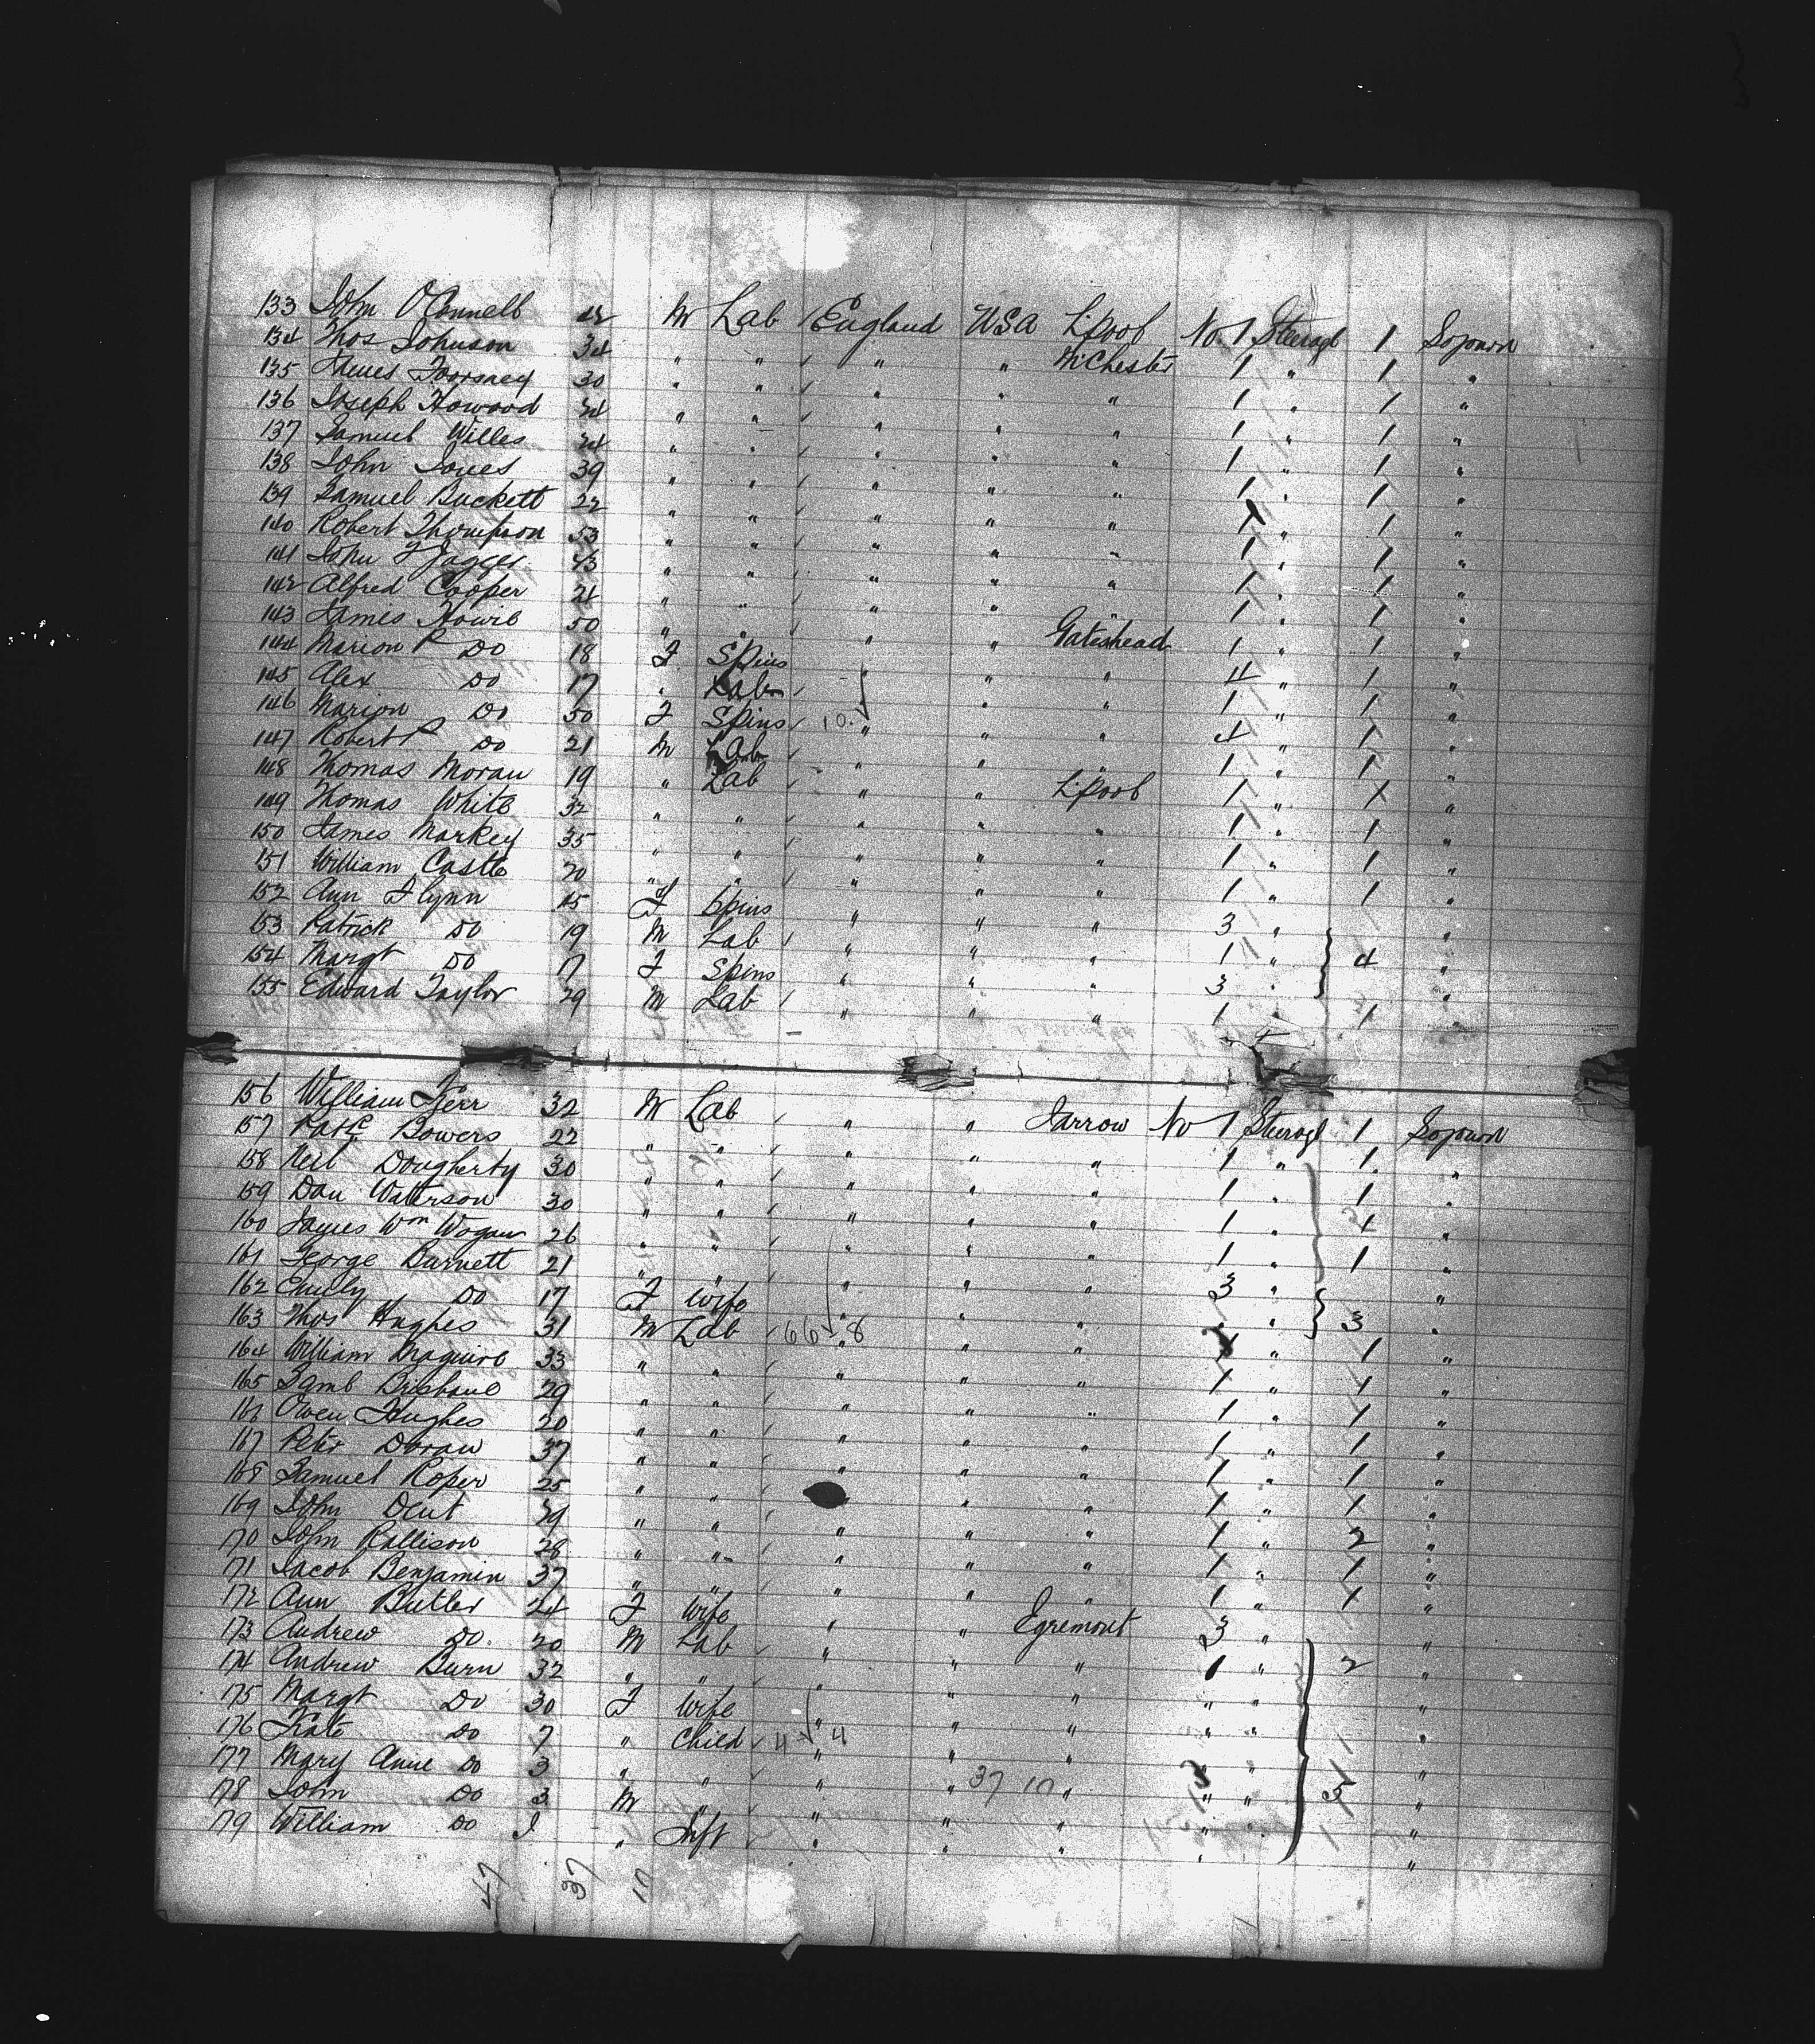 133 John O'Connell M Lab England USA L'Pool No 1 Steerage 1 Sojourn
134 Thos Johnson 34 " " " " McChester 1 " 1 "
135 30 " " " " " 1 " 1 "
136 Joseph Howood " " " " " 1 " 1 "
137 Samuel Willes 24 " " " " " 1 " 1 "
138 John Jones 39 " " " " " 1 " 1 "
139 Samuel Buckett 22 " " " " " 1 " 1 "
140 Robert Thompson 53 " " " " " 1 " 1 "
141 John 43 " " " " " 1 " 1 "
142 Alfred Cooper 21 " " " " " 1 " 1 "
143 James Howie 50 " " " " Gateshead 1 " 1 "
144 Marion P Do 18 F Spins " " " 4 " 1 "
145 Alex Do 17 " Lab " " " 1 " 1 "
146 Marion Do 50 F Spins 10 " " " 4 " 1 "
147 Robert P Do 21 M Lab " " " 1 " 1 "
148 Thomas Moran 19 " Lab " " L'Pool 1 " 1 "
149 Thomas White 32 " " " " " 1 " 1 "
150 James Markey 35 " " " " " 1 " 1 "
151 William Castle 20 " " " " " 1 " 1 "
152 Ann Flynn F Spins " " " 3 " "
153 Patrick Do 19 M Lab " " " 1 " 4 "
154 Margt Do 17 F Spins " " " 3 " "
155 Edward Taylor 29 M Lab " " " 1 " 1 "
156 William Kerr 32 M Lab " " Jarrow No 1 Steerage 1 Sojourn
157 Patk Bowers 22 " " " " " 1 " 1 "
158 Neil Dougherty 30 " " " " " 1 " 1 "
159 Dan Waterson 30 " " " " " 1 " 1 "
160 James Wm Wogan 26 " " " " " 1 " 1 "
161 George Burnett 21 " " " " " 3 " "
162 Emily Do 17 F Wife " " " " " 3 "
163 Thos Hughes 31 M Lab 66 8 " " " 1 " 1 "
164 William Maguire 33 " " " " " 1 " 1 "
165 29 " " " " " 1 " 1 "
166 Owen Hughes 20 " " " " " 1 " 1 "
167 Peter Doran 37 " " " " " 1 " 1 "
168 Samuel Roper 25 " " " " 1 " 1 "
169 John Dent 29 " " " " " 1 " 2 "
170 John Rallison 28 " " " " " 1 " 1 "
171 Jacob Benjamin 37 " " " " " 1 " 1 "
172 Ann Butler 24 F Wife " " Egremont 3 " "
173 Andrew Do 20 M Lab " " " 1 " 2 "
174 Andrew Burn 32 " " " " " " " "
175 Margt Do 30 F Wife " " " " " "
176 Kate Do 7 " Child 4 4 " " " " " "
177 Mary Anne Do 3 " " " " 37 10 " " " 5 "
178 John Do 3 M " " " " " " "
179 William Do " Inft " " " " "
47 37 10